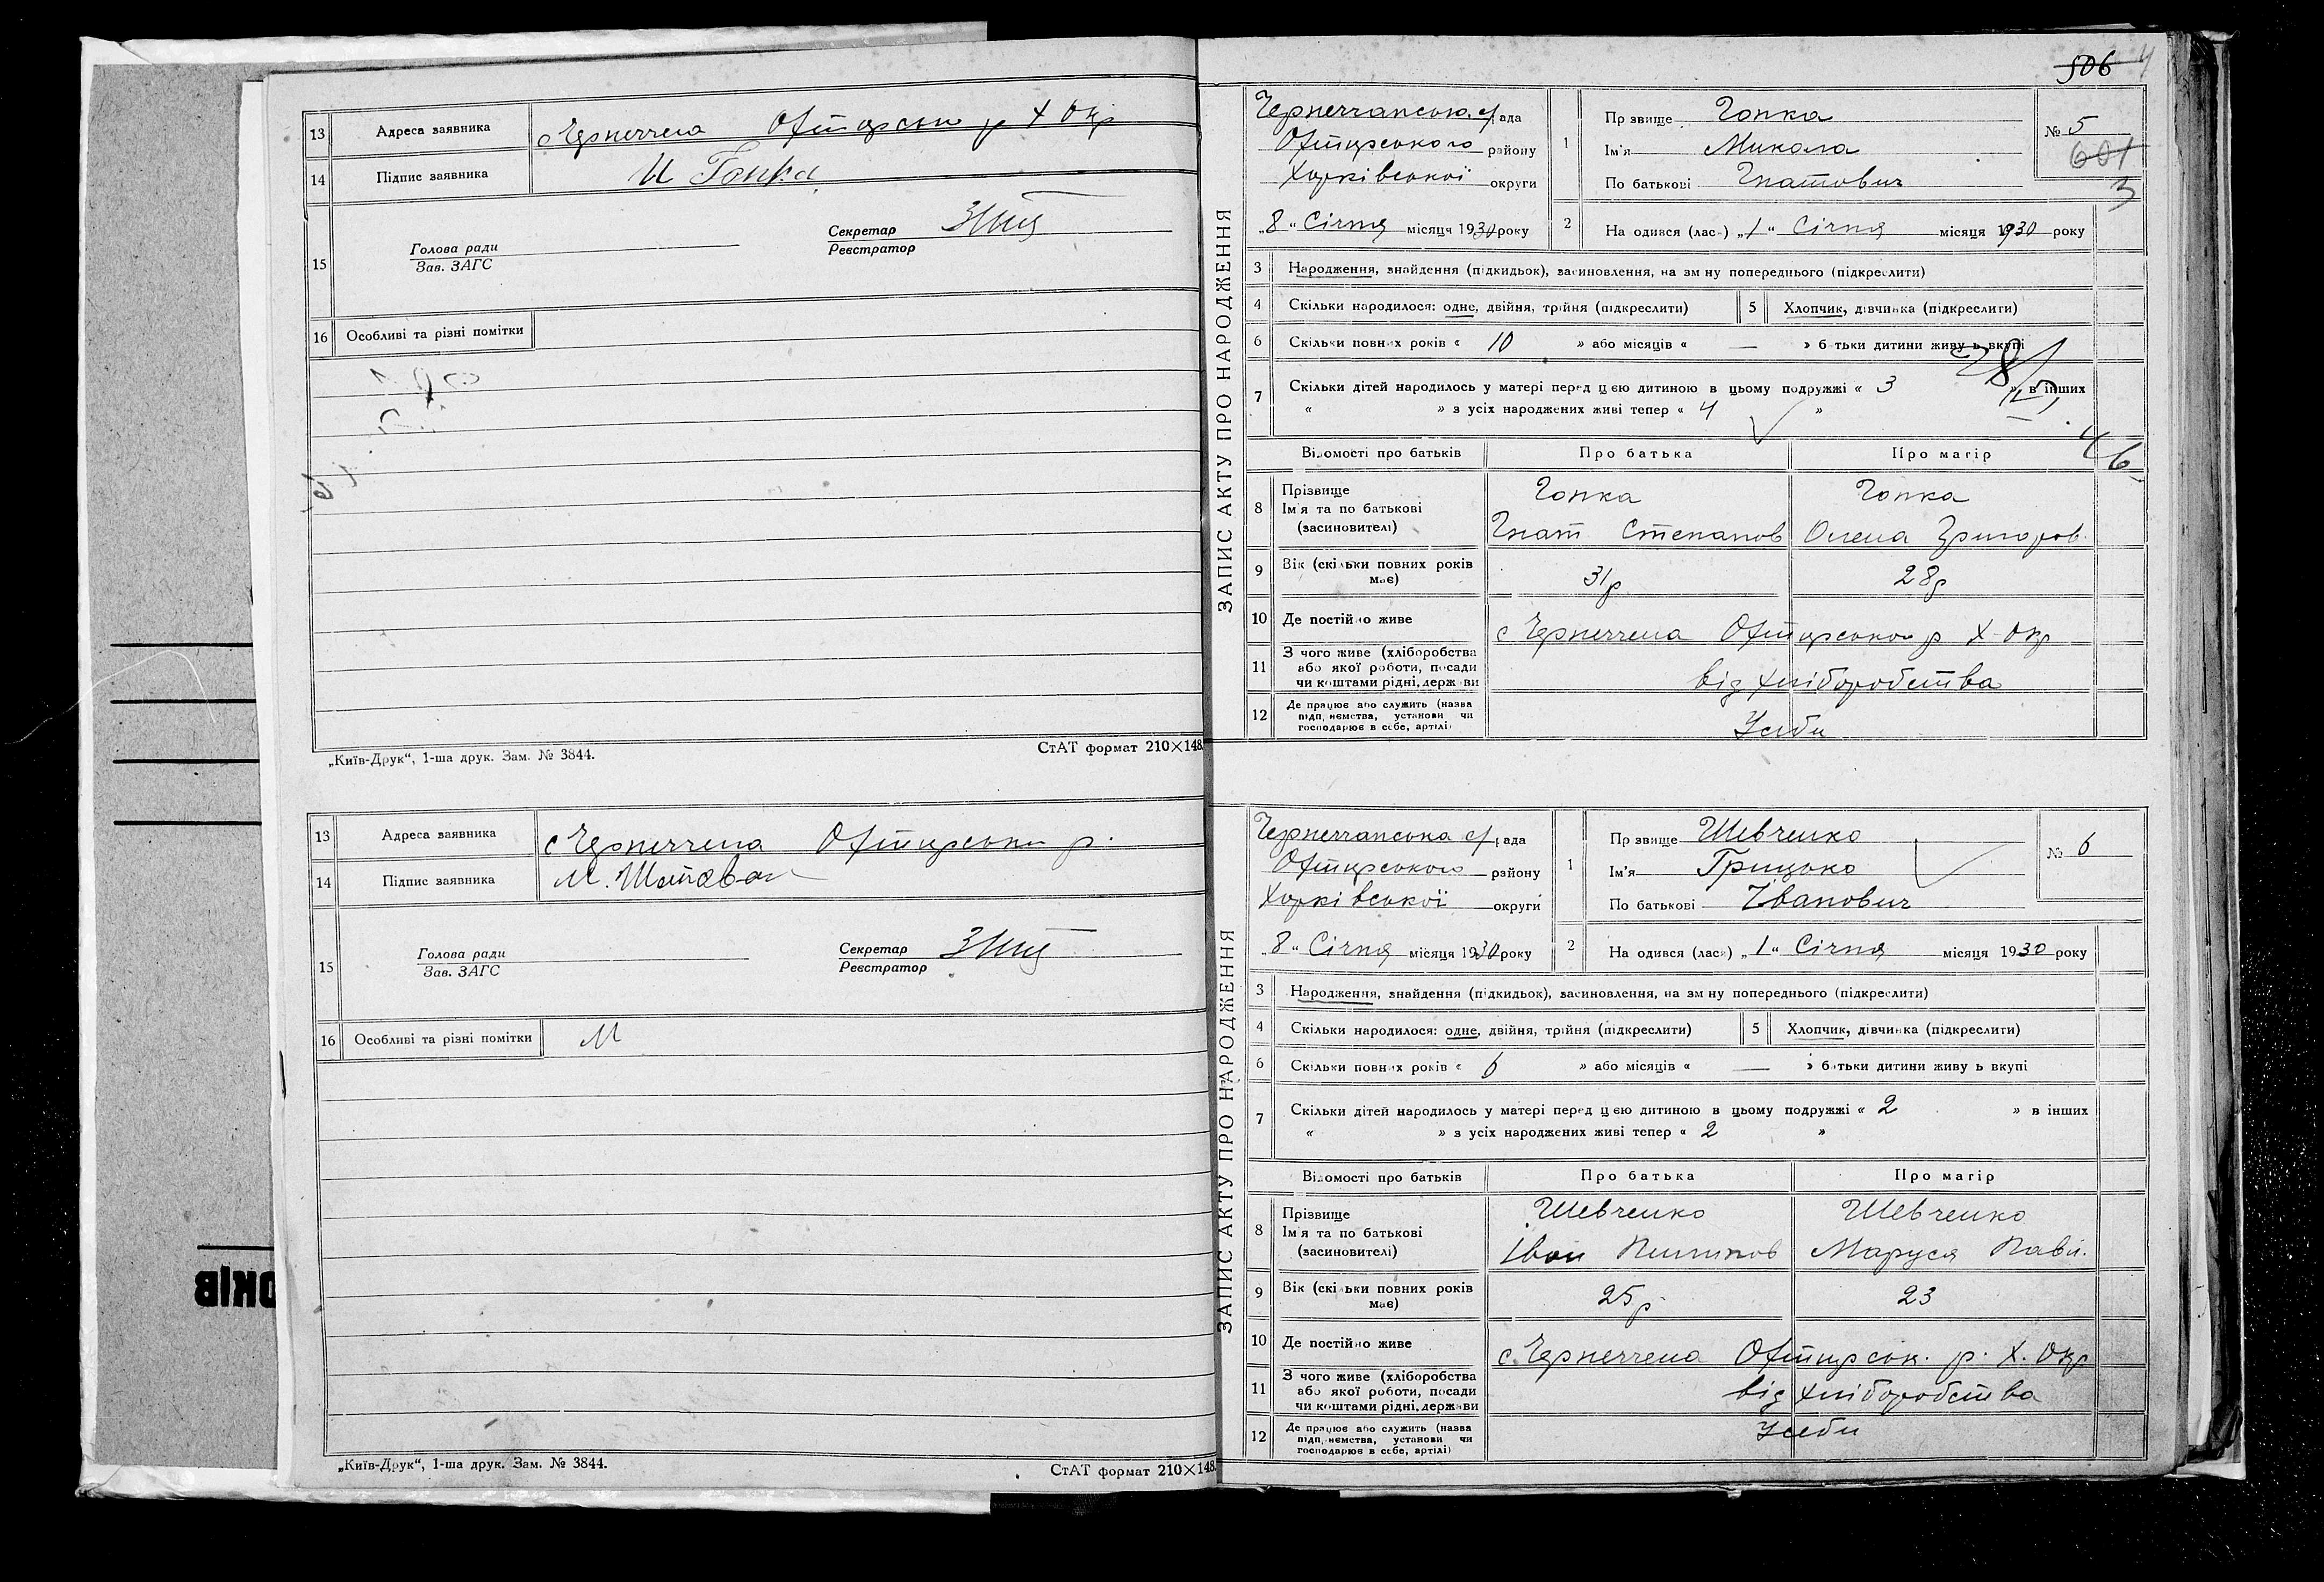 13 Адреса заявника с Чернеччена Охтирсько р Х Окр
14 Підпис заявника И Гопка
15 Голова ради
Зав. ЗАГС
Секретар
Реєстратор
16 Особливі та різні помітки
„Київ-Друк“, 1-ша друк. Зам. № 3844.
СтАТ формат 210×148
13 Адреса заявника с Чернеччена Охтирськи р.
14 Підпис заявника
15 Голова ради
Зав. ЗАГС
Секретар
Реєстратор
16 Особливі та різні помітки М
„Київ-Друк“, 1-ша друк. Зам. № 3844.
СтАТ формат 210×148
ОКІВ
506 4
ЗАПИС АКТУ ПРО НАРОДЖЕННЯ
Чернеччанська с/рада
Охтирського району
Харківської округи
„8“ Січня місяця 1930 року
1 Прізвище Гопка
Ім'я Микола
По батькові Гнатович
№ 5
601
3
2 Народився (лася) „1“ Січня місяця 1930 року
3 Народження, знайдення (підкидьок), засиновлення, на зміну попереднього (підкреслити)
4 Скільки народилося: одне, двійня, трійня (підкреслити) 5 Хлопчик, дівчинка (підкреслити)
6 Скільки повних років « 10 » або місяців « — » батьки дитини живуть вкупі
7 Скільки дітей народилось у матері перед цією дитиною в цьому подружжі « 3 » в інших
« » з усіх народжених живі тепер « 4 »
Відомості про батьків Про батька Про матір
8 Прізвище Ім'я та по батькові (засиновителі)
Гопка Гопка
Гнат Степанов Олена Григоров.
9 Вік (скільки повних років має) 31р 28р
10 Де постійно живе с Чернеччена Охтирсько р Х-Окр
11 З чого живе (хліборобства
або якої роботи, посади
чи коштами рідні, держави
від хліборобства
12 Де працює або служить (назва
підприємства, установи чи
господарює в себе, артілі)
У себи
ЗАПИС АКТУ ПРО НАРОДЖЕННЯ
Чернеччанська с/рада
Охтирського району
Харківської округи
„8“ Січня місяця 1930 року
1 Прізвище Шевченко
Ім'я Грицько
По батькові Іванович
№ 6
2 Народився (лася) „1“ Січня місяця 1930 року
3 Народження, знайдення (підкидьок), засиновлення, на зміну попереднього (підкреслити)
4 Скільки народилося: одне, двійня, трійня (підкреслити) 5 Хлопчик, дівчинка (підкреслити)
6 Скільки повних років « 6 » або місяців « — » батьки дитини живуть вкупі
7 Скільки дітей народилось у матері перед цією дитиною в цьому подружжі « 2 » в інших
« » з усіх народжених живі тепер « 2 »
Відомості про батьків Про батька Про матір
8 Прізвище Ім'я та по батькові (засиновителі)
Шевченко Шевченко
Іван Маруся Павл.
9 Вік (скільки повних років має) 25р 23
10 Де постійно живе с. Чернеччена Охтирськ. р. Х. Окр
11 З чого живе (хліборобства
або якої роботи, посади
чи коштами рідні, держави
від хліборобства
12 Де працює або служить (назва
підприємства, установи чи
господарює в себе, артілі)
У себи